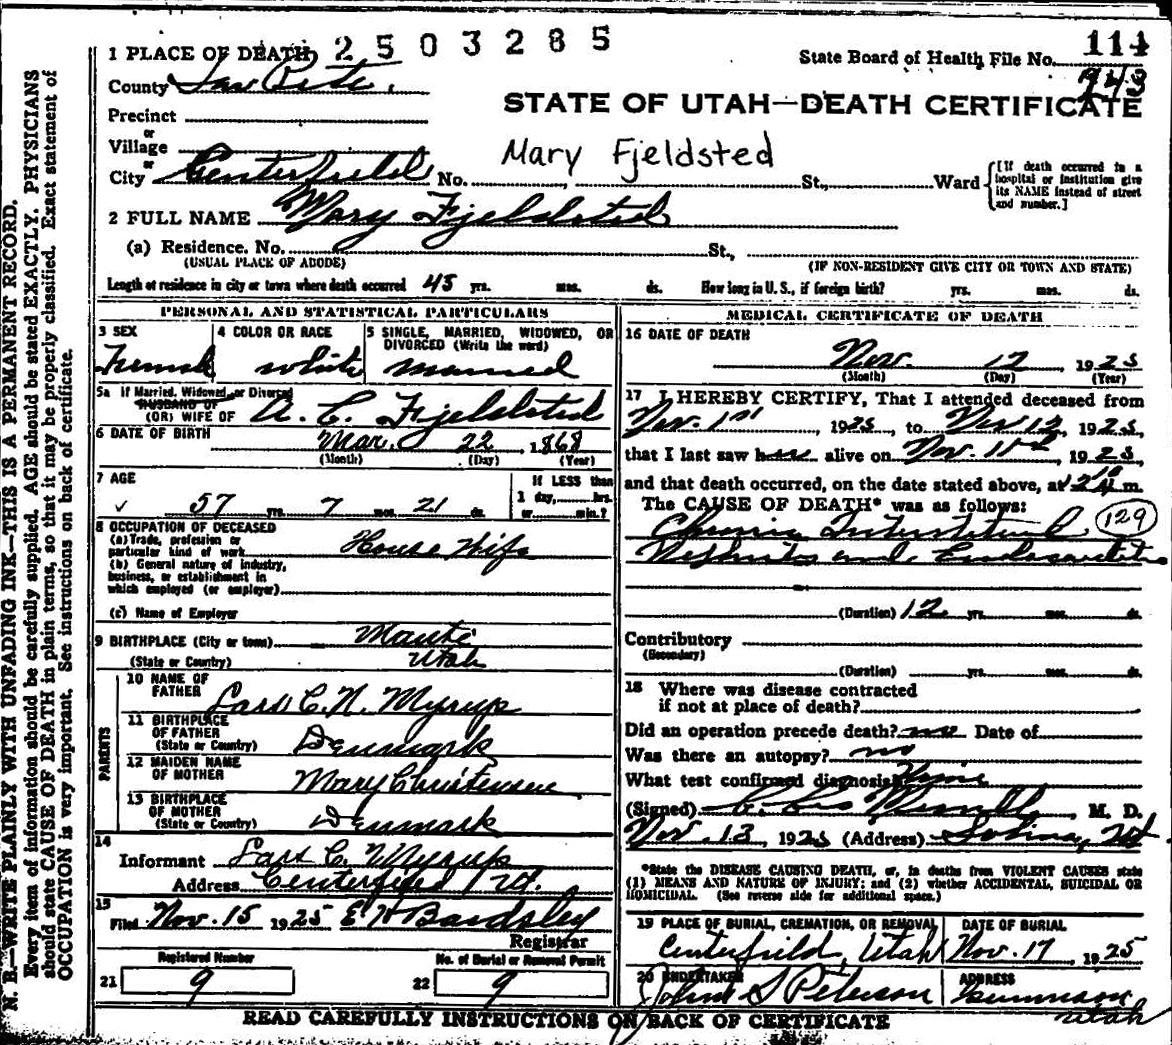 1 PLACE OF DEATH 2 5 0 3 2 8 5
State Board of Health File No. 114
943
County San Pete.
STATE OF UTAH—DEATH CERTIFICATE
Precinct
or
Village
Mary Fjeldsted
or
City Centerfield No. , St., Ward
[If death occurred in a hospital or institution give its NAME instead of street and number.]
2 FULL NAME Mary Fjeldsted
(a) Residence. No. St.,
(USUAL PLACE OF ABODE) (IF NON-RESIDENT GIVE CITY OR TOWN AND STATE)
Length of residence in city or town where death occurred 45 yrs. mos. ds. How long in U. S., if foreign birth? yrs. mos. ds.
PERSONAL AND STATISTICAL PARTICULARS
3 SEX
Female
4 COLOR OR RACE
white
5 SINGLE, MARRIED, WIDOWED, OR DIVORCED (Write the word)
married
5a If Married, Widowed, or Divorced
HUSBAND OF
(OR) WIFE OF A. C. Fjeldsted
6 DATE OF BIRTH Mar. 22, 1868
(Month) (Day) (Year)
7 AGE
57 yrs. 7 mos. 21 ds.
If LESS than
1 day, hrs.
or min.?
8 OCCUPATION OF DECEASED
(a) Trade, profession or
particular kind of work House Wife
(b) General nature of industry,
business, or establishment in
which employed (or employer)
(c) Name of Employer
9 BIRTHPLACE (City or town) Manti
(State or Country) Utah
PARENTS
10 NAME OF
FATHER Lars C. N. Myrup
11 BIRTHPLACE
OF FATHER
(State or Country) Denmark
12 MAIDEN NAME
OF MOTHER Mary Christensen
13 BIRTHPLACE
OF MOTHER
(State or Country) Denmark
14
Informant Lars C. Myrup
Address Centerfield Ut.
15
Filed Nov. 15 1925 E H Bardsley
Registrar
Registered Number No. of Burial or Removal Permit
21 9 22 9
MEDICAL CERTIFICATE OF DEATH
16 DATE OF DEATH
Nov. 12 1925
(Month) (Day) (Year)
17 I HEREBY CERTIFY, That I attended deceased from
Nov. 1st, 1925, to Nov 12, 1925,
that I last saw her alive on Nov. 11th, 1925,
and that death occurred, on the date stated above, at m.
The CAUSE OF DEATH* was as follows:
Chronic Interstitial 129
Nephritis and Endocarditis
(Duration) 12 yrs. mos. ds.
Contributory
(Secondary)
(Duration) yrs. mos. ds.
18 Where was disease contracted
if not at place of death?
Did an operation precede death? no Date of
Was there an autopsy? no
What test confirmed diagnosis? Urine
(Signed) M. D.
Nov. 13, 1925 (Address) Salina, Ut
*State the DISEASE CAUSING DEATH, or, in deaths from VIOLENT CAUSES state
(1) MEANS AND NATURE OF INJURY; and (2) whether ACCIDENTAL, SUICIDAL OR
HOMICIDAL. (See reverse side for additional space.)
19 PLACE OF BURIAL, CREMATION, OR REMOVAL
Centerfield, Utah
DATE OF BURIAL
Nov. 17, 1925
20 UNDERTAKER
John S Peterson
ADDRESS
Gunnison
Utah
READ CAREFULLY INSTRUCTIONS ON BACK OF CERTIFICATE
N. B.—WRITE PLAINLY WITH UNFADING INK—THIS IS A PERMANENT RECORD.
Every item of information should be carefully supplied. AGE should be stated EXACTLY. PHYSICIANS
should state CAUSE OF DEATH in plain terms, so that it may be properly classified. Exact statement of
OCCUPATION is very important. See instructions on back of certificate.